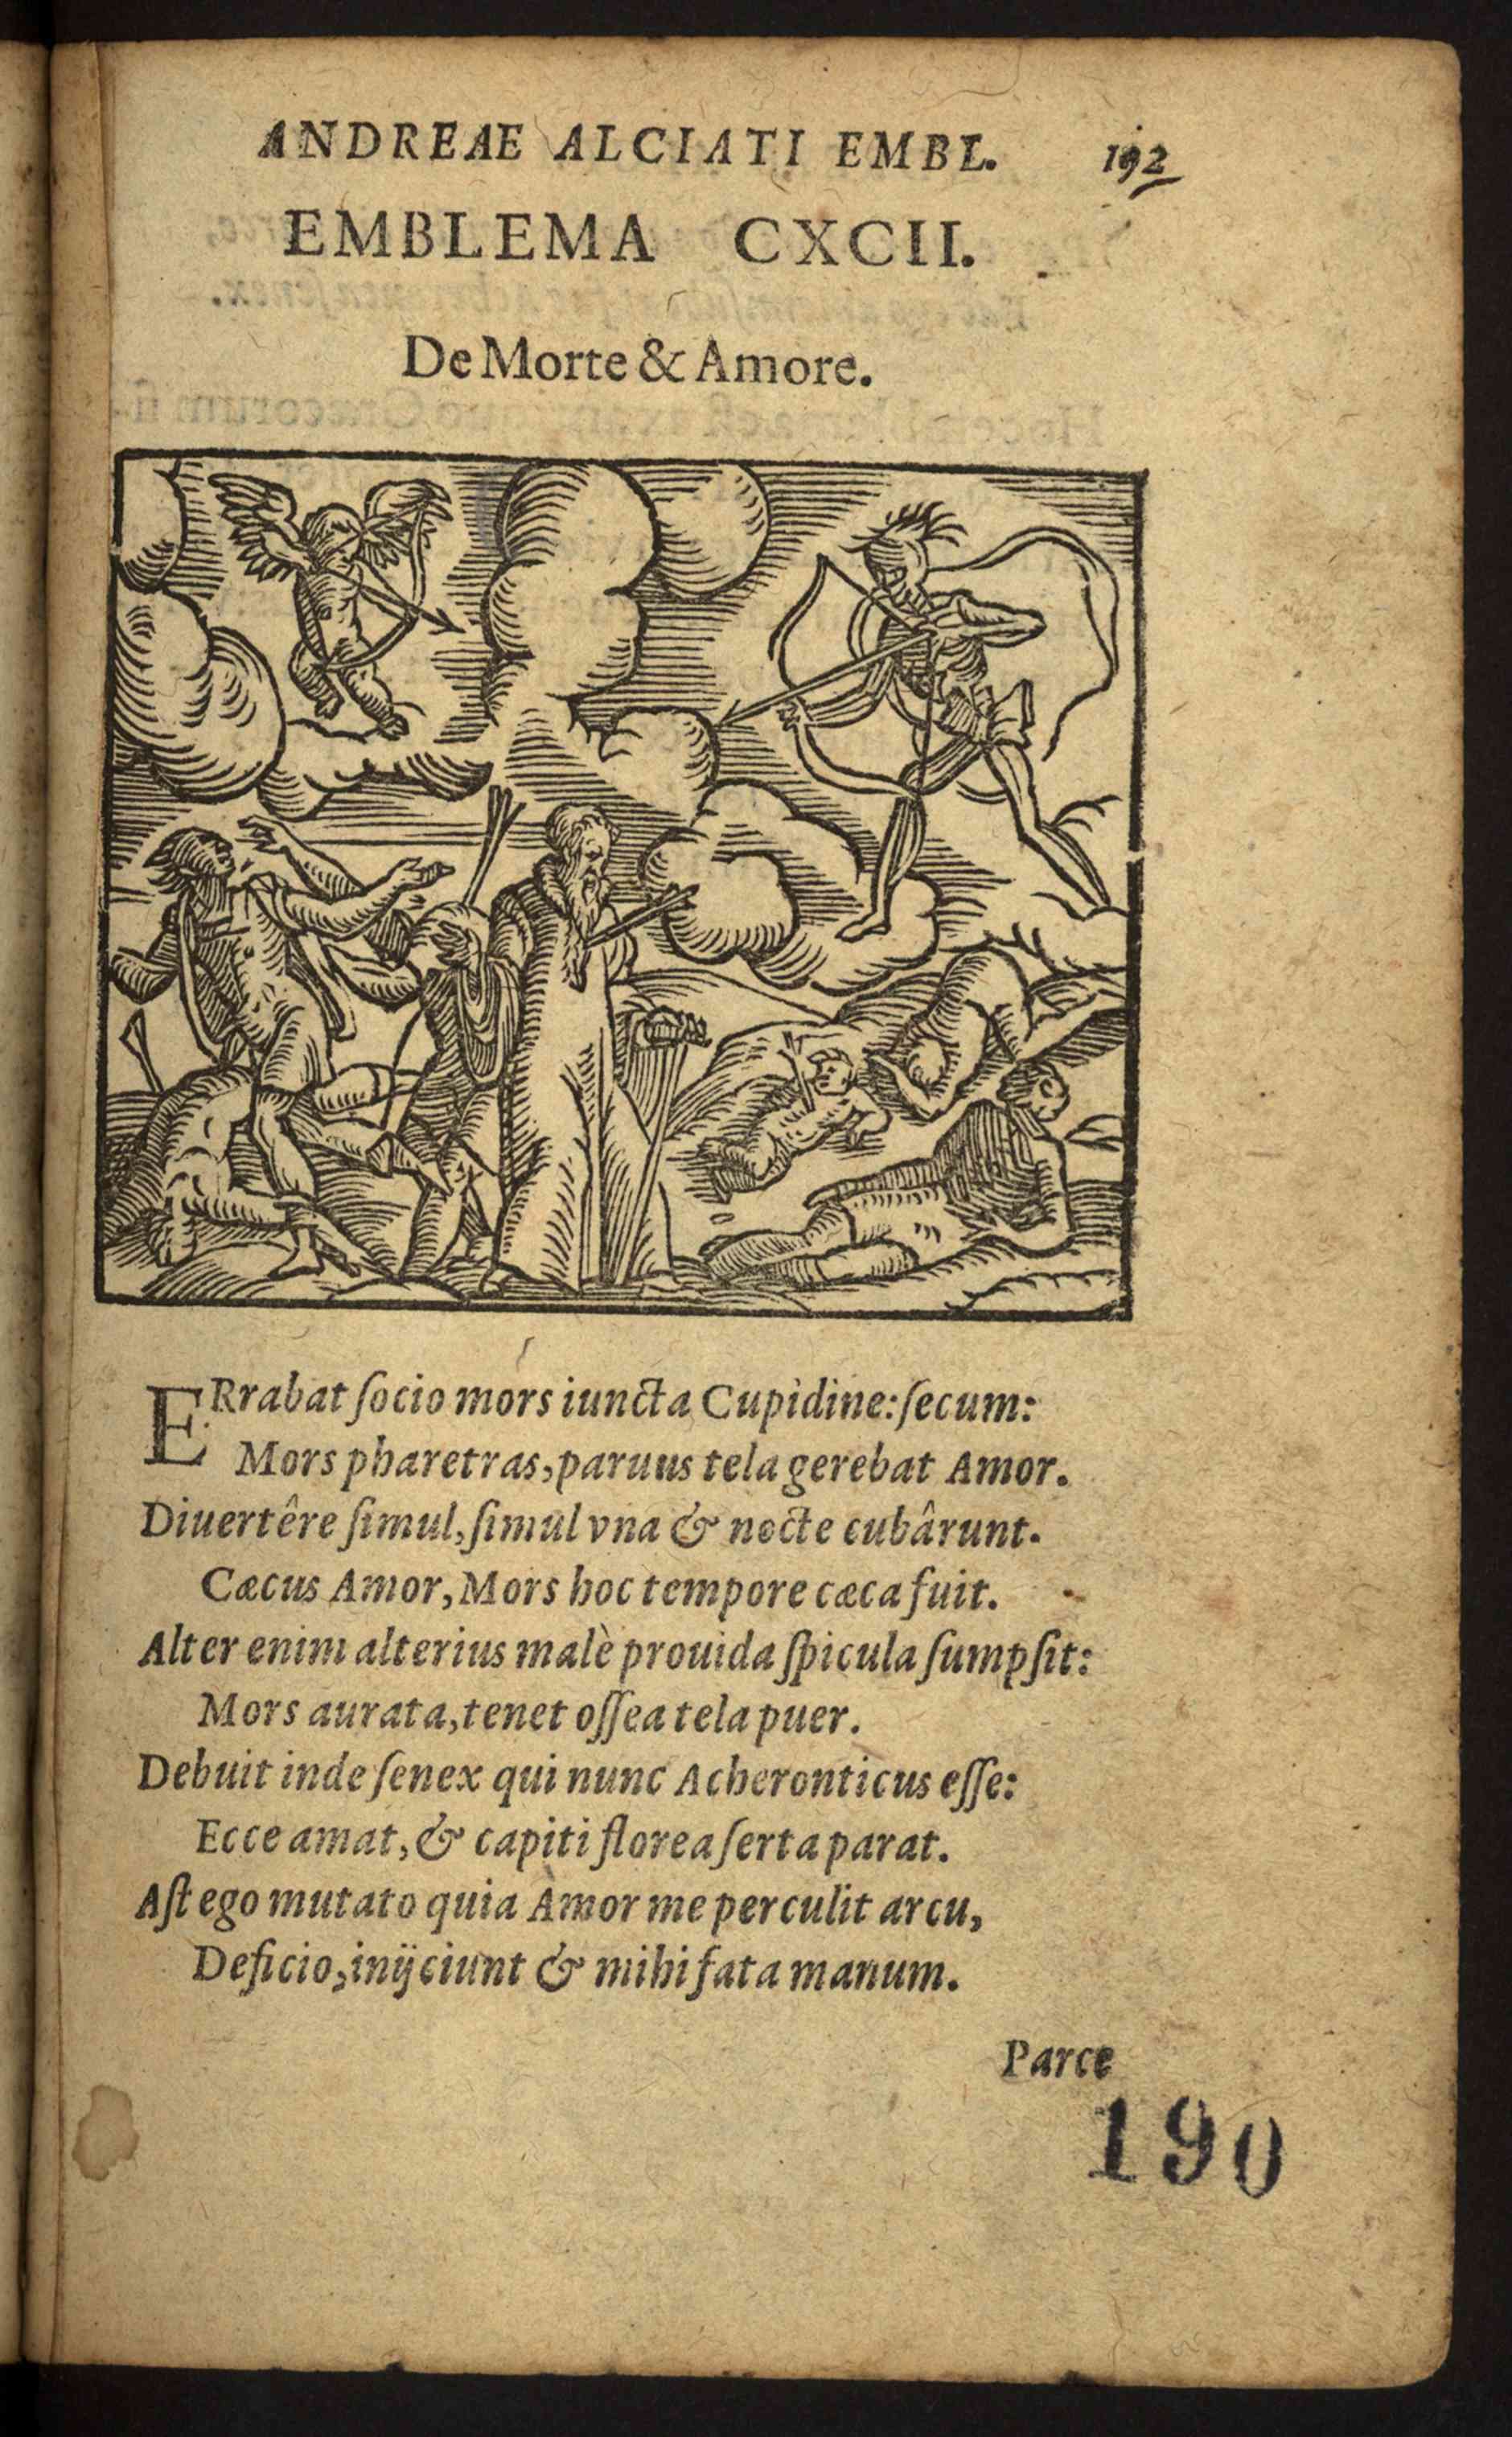 ANDREAE ALCIATI EMBL. 192
EMBLEMA CXCII.
De Morte & Amore.
ERrabat ſocio mors iuncta Cupidine: ſecum:
Mors pharetras, paruus tela gerebat Amor.
Diuertêre ſimul, ſimul vna & nocte cubârunt.
Cæcus Amor, Mors hoc tempore cæca fuit.
Alter enim alterius malè prouida ſpicula ſumpſit:
Mors aurata, tenet oſſea tela puer.
Debuit inde ſenex qui nunc Acheronticus eſſe:
Ecce amat, & capiti florea ſerta parat.
Aſt ego mutato quia Amor me perculit arcu,
Deficio, inijciunt & mihi fata manum.
Parce
190